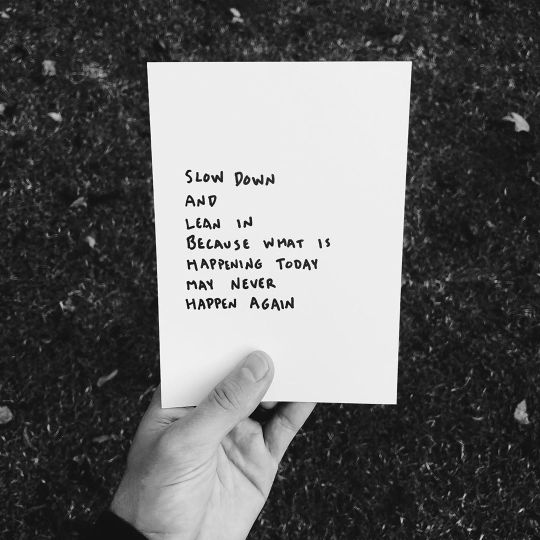 SLOW DOWN
AND
LEAN IN
BECAUSE WHAT IS
HAPPENING TODAY
MAY NEVER
HAPPEN AGAIN